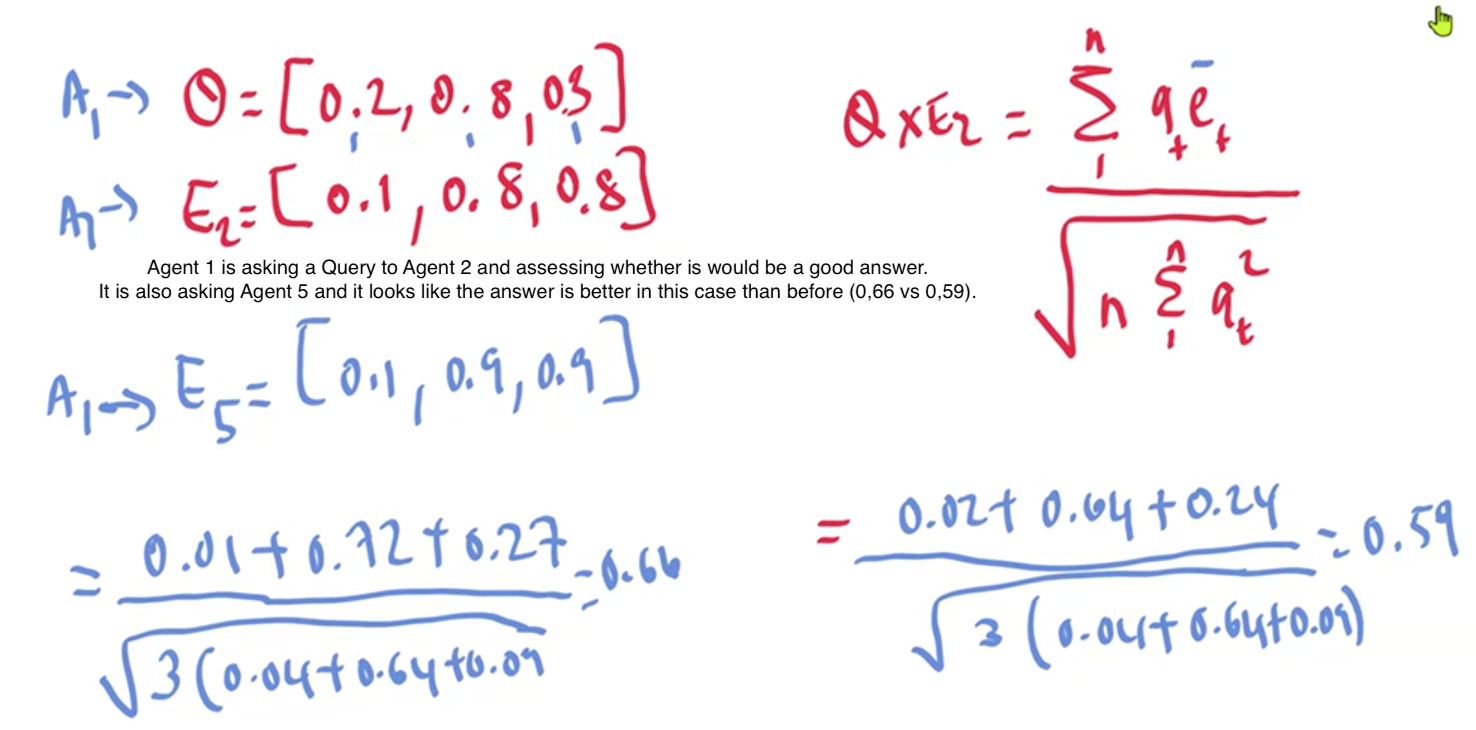 A₁→ Q=[0.2, 0.8, 0.3]
A₂→ E₂=[0.1, 0.8, 0.8]
Q×E₂ = Σ₁ⁿ qₜ ēₜ / √(n Σ₁ⁿ qₜ²)
Agent 1 is asking a Query to Agent 2 and assessing whether is would be a good answer.
It is also asking Agent 5 and it looks like the answer is better in this case than before (0,66 vs 0,59).
A₁→ E₅=[0.1, 0.9, 0.9]
= 0.01+0.72+0.27 / √3(0.04+0.64+0.09 = 0.66
= 0.02+0.64+0.24 / √3(0.04+0.64+0.09) = 0.59